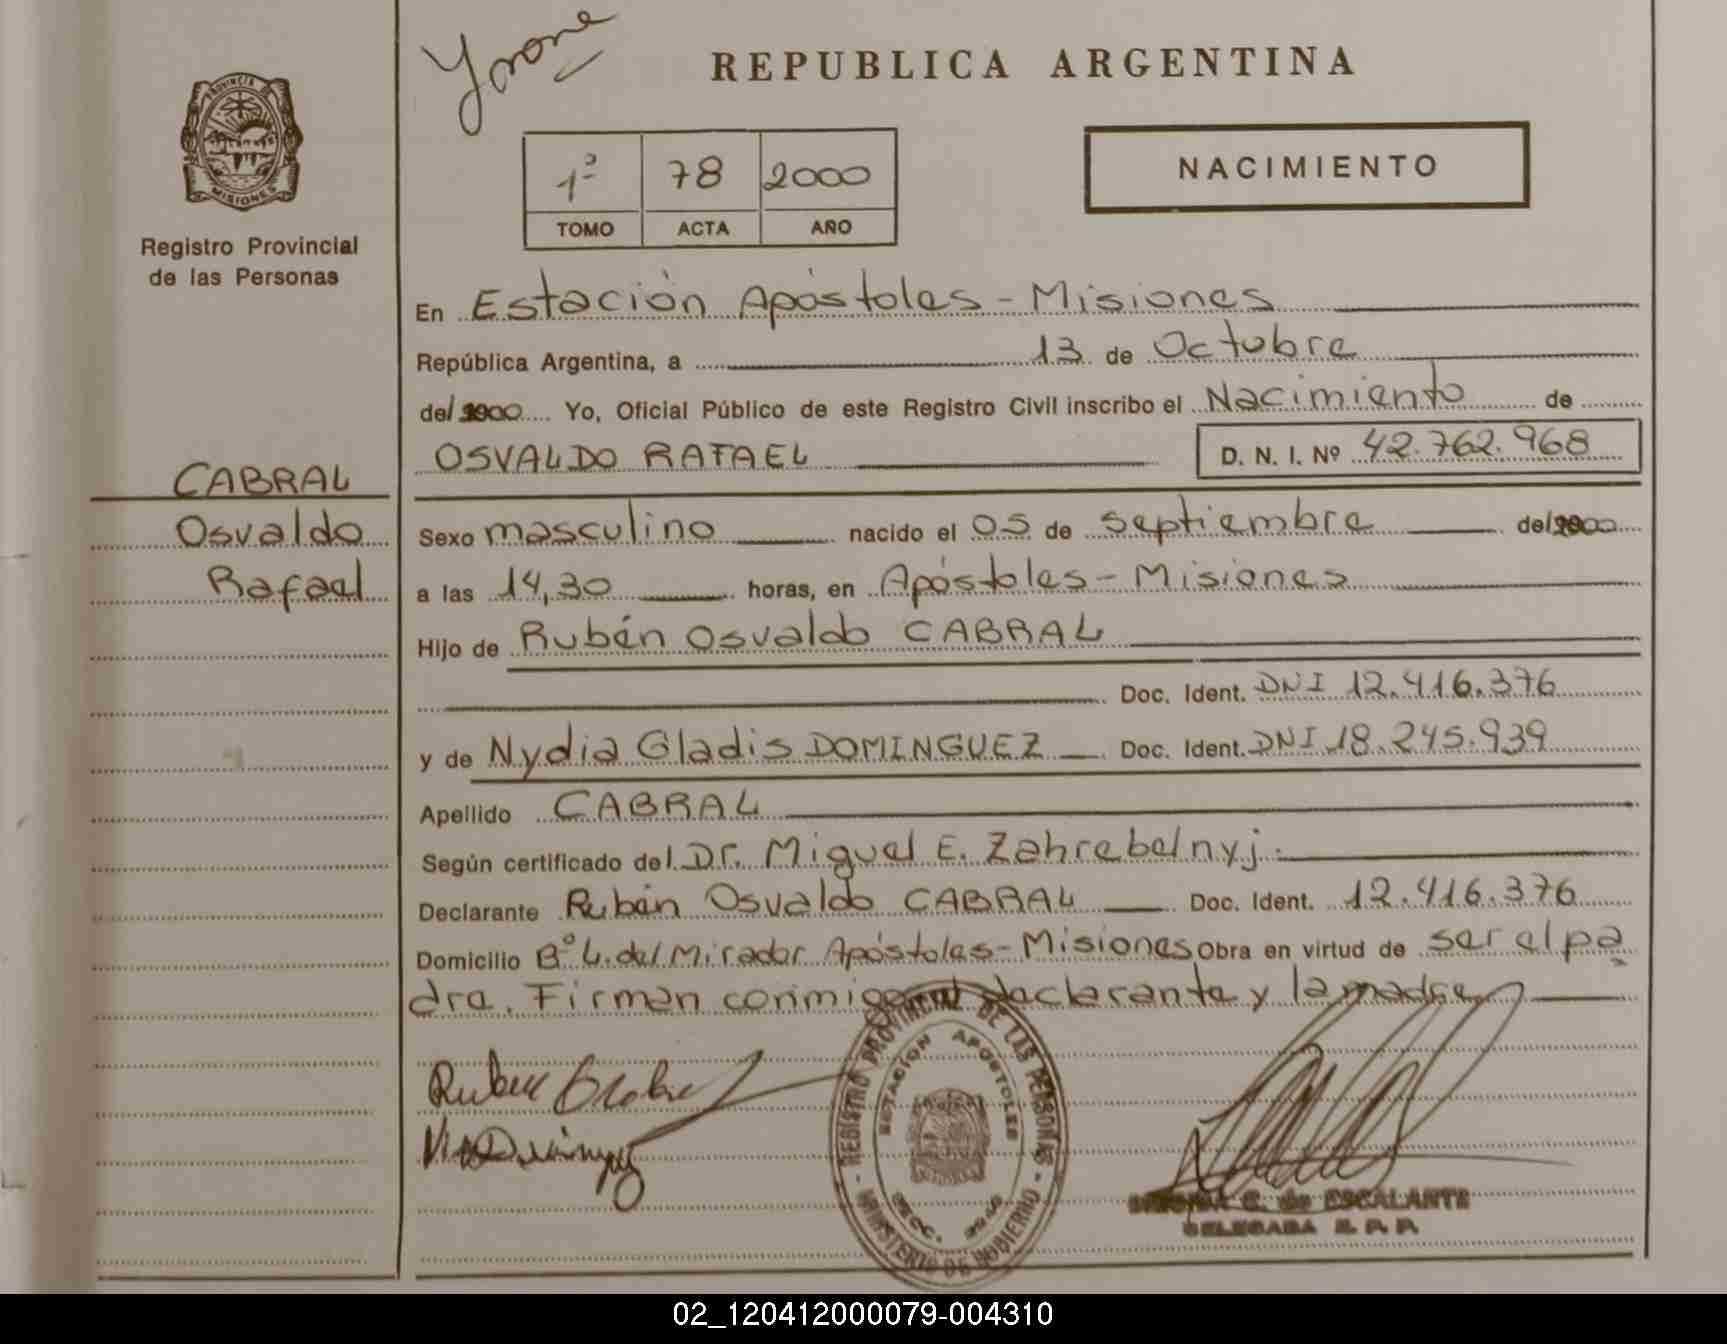 Yvone
REPUBLICA ARGENTINA
PROVINCIA DE
MISIONES
Registro Provincial
de las Personas
1º 78 2000
TOMO ACTA AÑO
NACIMIENTO
En Estación Apóstoles - Misiones
República Argentina, a 13 de Octubre
del 2000 Yo, Oficial Público de este Registro Civil inscribo el Nacimiento de
OSVALDO RAFAEL D. N. I. Nº 42.762.968
CABRAL
Osvaldo
Rafael
Sexo masculino nacido el 05 de septiembre del 2000
a las 14,30 horas, en Apóstoles - Misiones
Hijo de Rubén Osvaldo CABRAL
Doc. Ident. DNI 12.416.376
y de Nydia Gladis DOMINGUEZ Doc. Ident. DNI 18.245.939
Apellido CABRAL
Según certificado del Dr. Miguel E. Zahrebelnyj.
Declarante Rubén Osvaldo CABRAL Doc. Ident. 12.416.376
Domicilio Bº L. del Mirador Apóstoles - Misiones Obra en virtud de ser el pa
dre. Firman conmigo el declarante y la madre
REGISTRO PROVINCIAL DE LAS PERSONAS
ESTACION APOSTOLES
SECC.
MINISTERIO DE GOBIERNO
Ruben
C. de ESCALANTE
DELEGADA R. P. P.
02_120412000079-004310